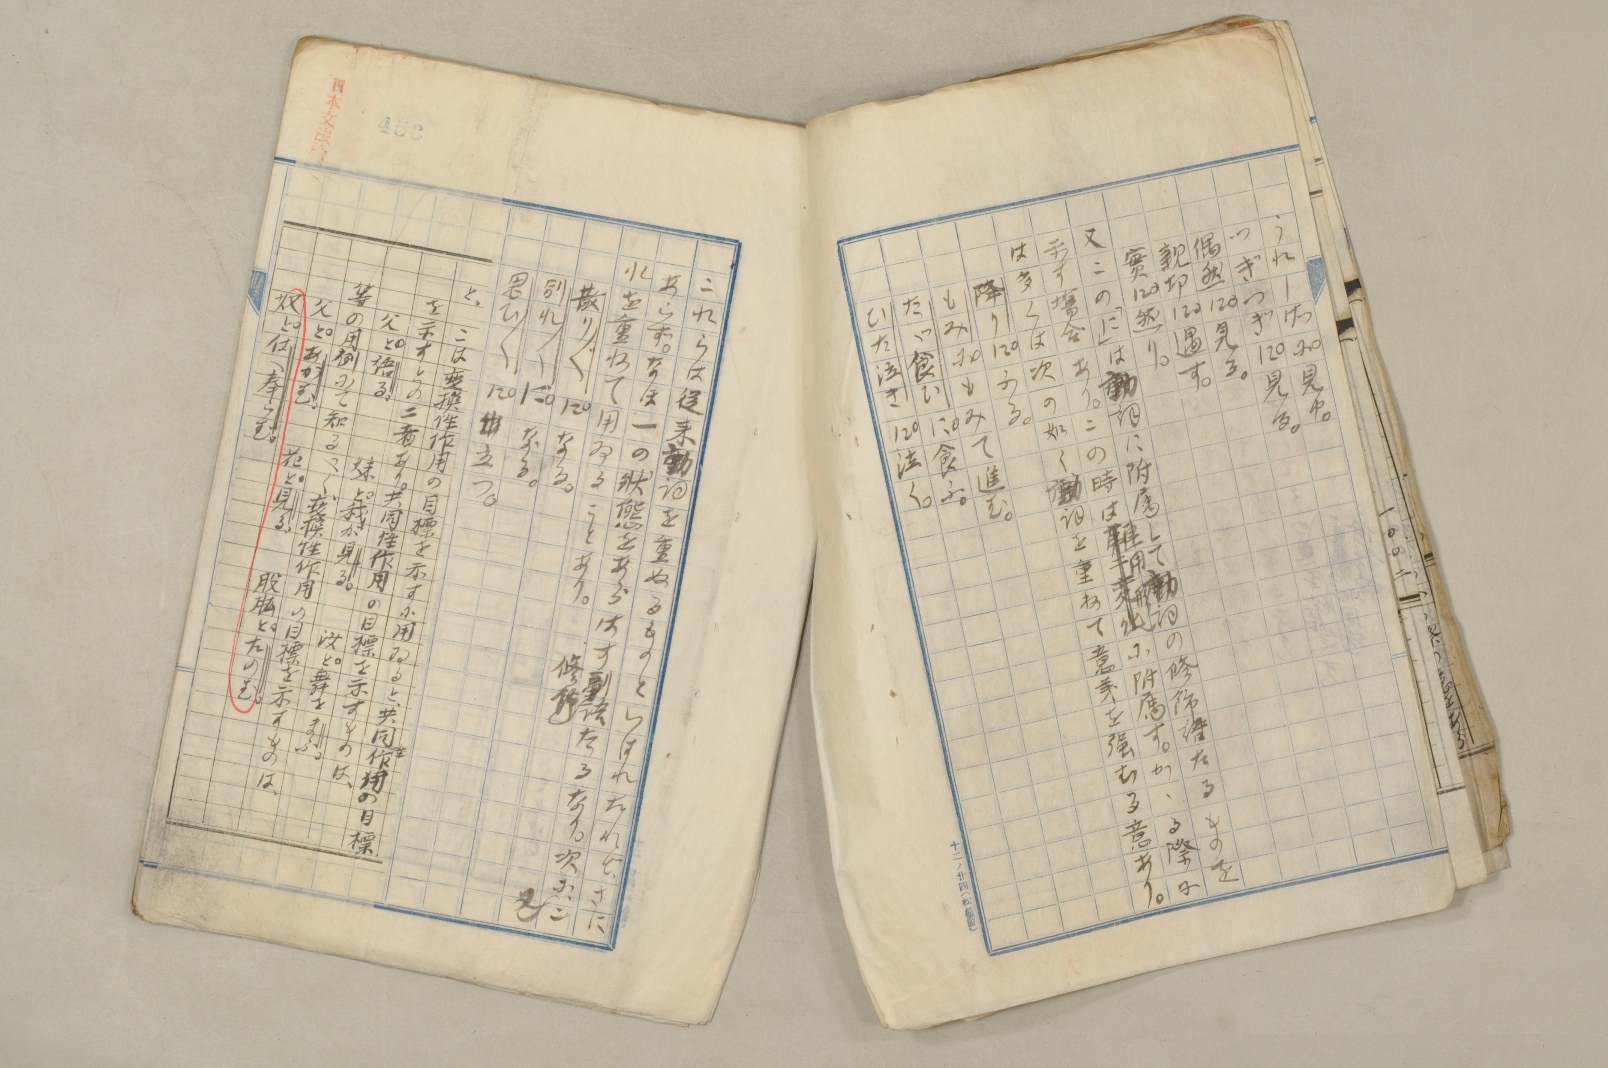 うれしげに見ゆ。
つぎつぎに見る。
偶然に見る。
親切に遇す。
實に然り。
又この「に」は動詞に附属して動詞の修飾語たるものを
示す場合あり。この時は連用形に附属す。かゝる際に
は多くは次の如く動詞を重ねて意義を強むる意あり。
降りに降る。
もみにもみて進む。
たゞ食ひに食ふ。
ひた泣きに泣く。
十二ノ廿四
これらは従来動詞を重ぬるものといはれたれど、さに
あらず。なほ一の状態をあらはす副詞たるなり。次に、こ
れを重ねて用ゐることあり。
修飾
散り〱になる。
別れ〱になる。
思ひ〱に出立つ。
と、こは変換性作用の目標を示すに用ゐると、共同性作用の目標
を示すとの二者あり。共同性作用の目標を示すものは、
父と語る。 妹と我が見る。 汝と舞をまふ。
等の用例にて知るべく、変換性作用の目標を示すものは、
父とあがむ。 花と見る。 股肱とたのむ。
奴と仕へ奉らむ。
日本文法